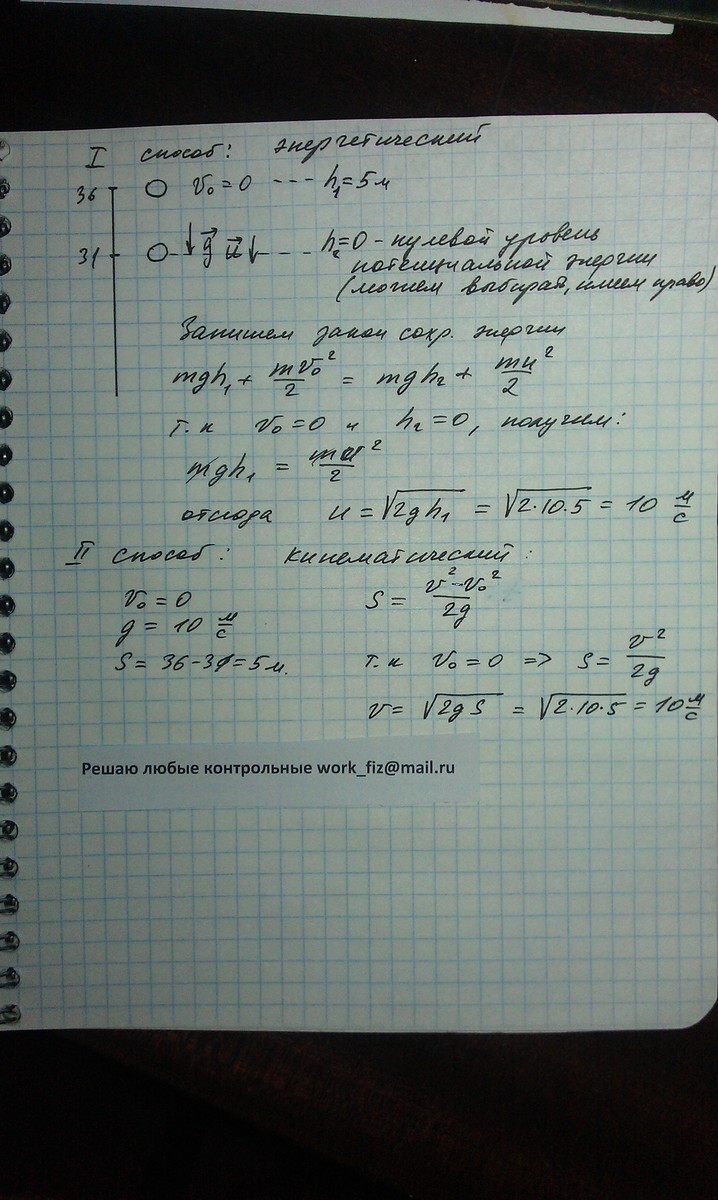 I способ: энергетический
36 v₀ = 0 --- h₁ = 5 м
31 ↓g⃗ u⃗↓ --- h₂ = 0 - нулевой уровень
потенциальной энергии
(можем выбирать, имеем право)
Запишем закон сохр. энергии
mgh₁ + mv₀²/2 = mgh₂ + mu²/2
т.к v₀ = 0 и h₂ = 0, получим:
mgh₁ = mu²/2
отсюда u = √2gh₁ = √2·10·5 = 10 м/с
II способ: кинематический:
v₀ = 0 S = v²-v₀²/2g
g = 10 м/с
S = 36-31 = 5 м. т.к v₀ = 0 => S = v²/2g
v = √2gS = √2·10·5 = 10 м/с
Решаю любые контрольные work_fiz@mail.ru